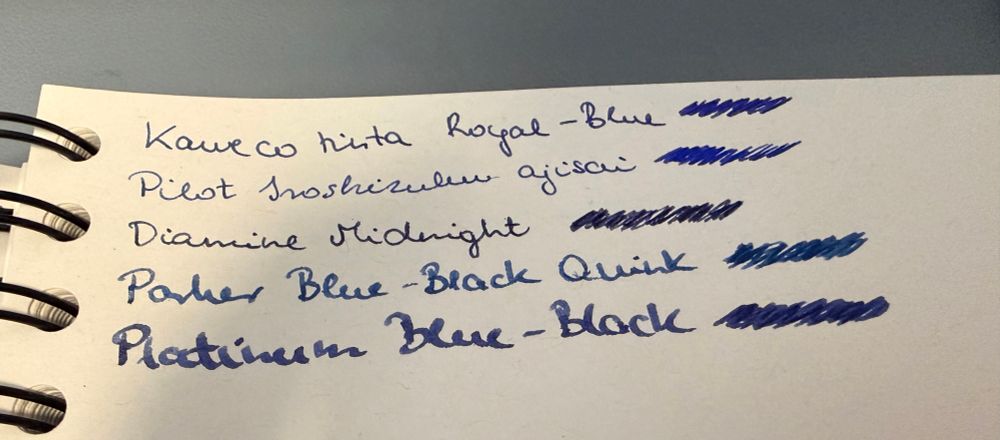 Kaweco tinta Royal-Blue
Pilot Iroshizuku ajisai
Diamine Midnight
Parker Blue-Black Quink
Platinum Blue-Black